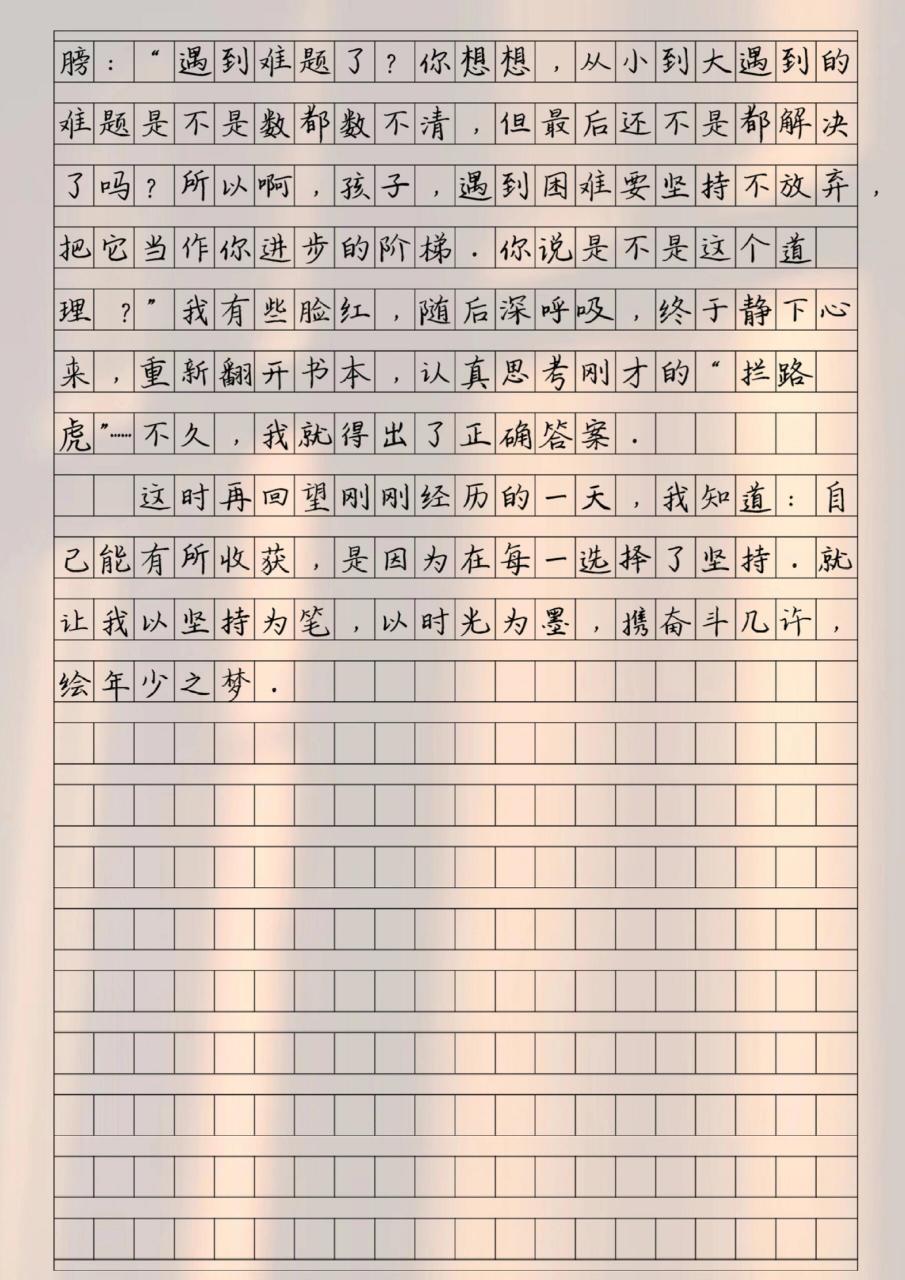 膀：“遇到难题了？你想想，从小到大遇到的
难题是不是数都数不清，但最后还不是都解决
了吗？所以啊，孩子，遇到困难要坚持不放弃，
把它当作你进步的阶梯．你说是不是这个道
理？”我有些脸红，随后深呼吸，终于静下心
来，重新翻开书本，认真思考刚才的“拦路
虎”……不久，我就得出了正确答案．
这时再回望刚刚经历的一天，我知道：自
己能有所收获，是因为在每一选择了坚持．就
让我以坚持为笔，以时光为墨，携奋斗几许，
绘年少之梦．